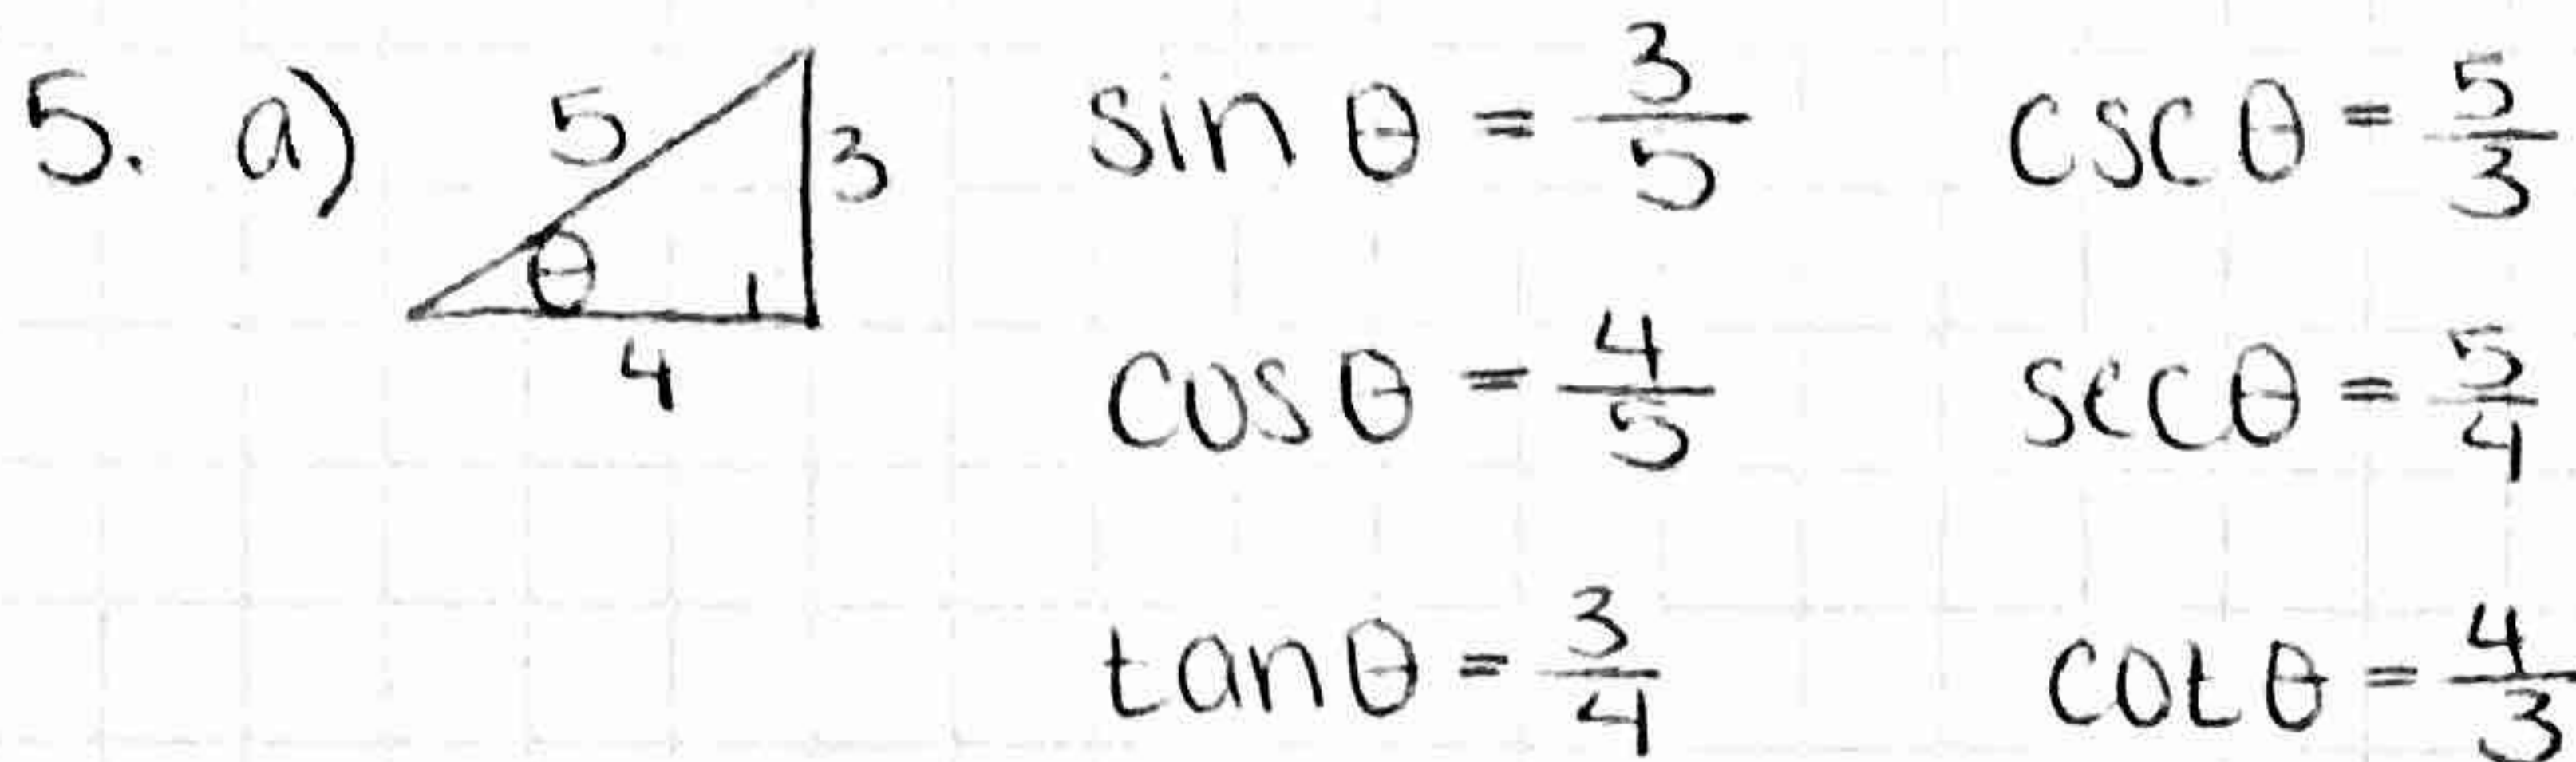 5. a) 5 3 θ 4 sin θ = 3/5 csc θ = 5/3
cos θ = 4/5 sec θ = 5/4
tan θ = 3/4 cot θ = 4/3